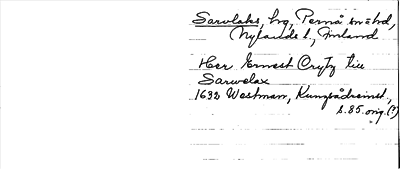 Sarvlaks, hg, Pernå snähd,
Nylands l., Finland
Her Ernest Crytz till
Sarwelax
1632 Westman, Kungsådreinst.,
s. 85. orig. (?)